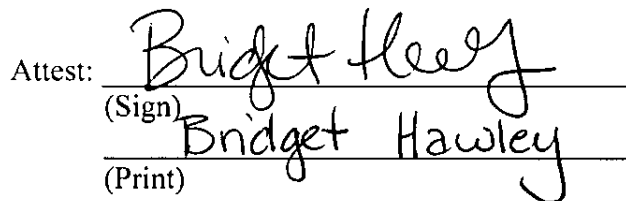 Attest: Bridget Hawley
(Sign)
Bridget Hawley
(Print)